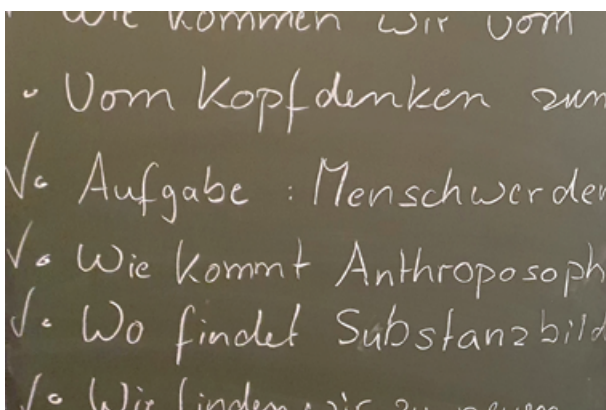 Wie kommen wir vom
• Vom Kopfdenken zum
√• Aufgabe : Menschwerden
√• Wie kommt Anthroposoph
√• Wo findet Substanzbild
√• Wie finden wir zu neuen